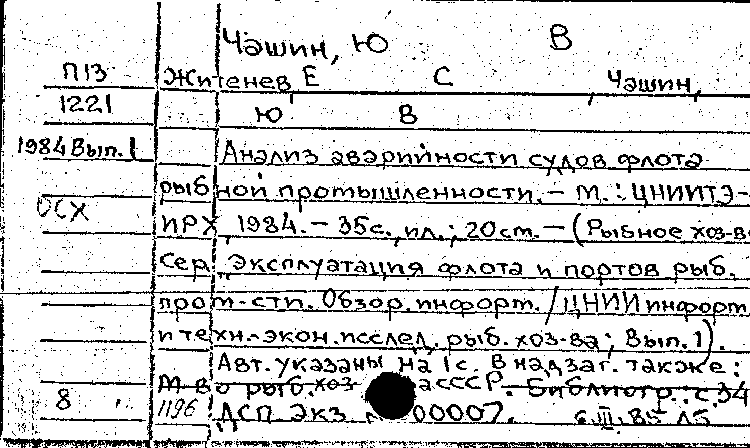 Чашин, Ю В
П13 Житенев Е С , Чашин,
1221 Ю В
1984 Вып. 1 Анализ аварийности судов флота
рыбной промышленности. – М. : ЦНИИТЭ-
ОСХ ИРХ, 1984. – 35с., ил. ; 20см. – (Рыбное хоз-во
Сер. Эксплуатация флота и портов рыб.
пром-сти. Обзор. информ. / ЦНИИ информ
и техн.-экон. исслед. рыб. хоз-ва; Вып. 1).
Авт. указаны на 1с. В надзаг. также:
М-во рыб. хоз СССР. Библиогр.: с. 34
8 1196 ДСП Экз 00007. 6.III.85 ЛБ